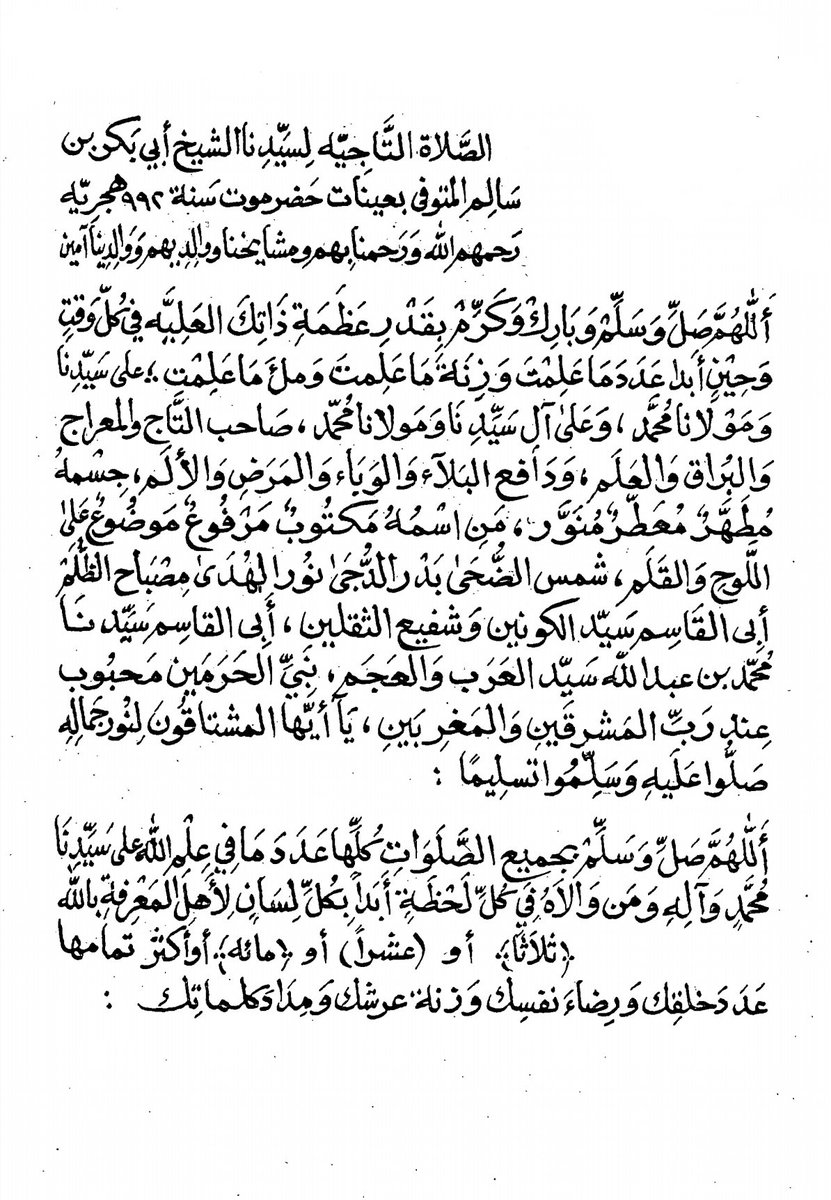 الصَّلاة التَّاجِيَّه لِسَيِّدِنا الشيخ أبي بَكر بن
سَالِم المتوفى بعينات حَضرموت سَنة ٩٩٢ هجريّه
رَحمهم الله وَرَحمنا بهم ومشايخنا ووالديهم وَوَالدِينا آمين
أَللّٰهُمَّ صَلِّ وَسَلِّمْ وَبَارِكْ وَكَرِّمْ بِقَدْرِ عَظَمَةِ ذَاتِكَ العَلِيَّه فِي كُلِّ وَقتٍ
وَحِيْنٍ أَبدا عَدَدَ مَا عَلِمْتَ وَزِنَةَ مَا عَلِمتَ وَملْأَ مَا عَلِمْتَ ؛؛ على سَيّدِنا
وَمَوْلانا مُحَمَّد ، وَعَلىٰ آل سَيِّدِنَا وَمَولانا مُحمّد ، صَاحب التَّاج والمعراج
وَالبُراق وَالعَلَم ، وَدَافع البَلآء وَالوَباء وَالمَرَضِ وَالأَلَم ، جِسْمهُ
مُطَهَّرٌ مُعَطَّرٌ مُنَوَّر ، مَنِ اسْمُهُ مَكتُوبٌ مَرْفُوعٌ مَوضُوعٌ عَلىٰ
اللَّوحِ وَالقَلَم ، شمس الضُّحَىٰ بَدْر الدُّجَىٰ نُور الهُدَىٰ مِصْبَاح الظُّلَمْ
أبى القَاسِم سَيِّد الكونين وَشفيع الثقلين ، أَبِى القاسِم سَيِّدنَا
مُحَمّد بن عبد الله سَيّد العَرَب وَالعَجَم ، نَبِيِّ الحَرَمَين مَحبُوب
عِندِ رَبِّ المَشرقَينِ وَالمَغرِبَينِ ، يَآ أيّها المشتاقُون لِنُورِ جَمَالِهِ
صَلُّوا عَلَيهِ وَسَلِّمُوا تسلِيمًا :
أَللّٰهُمَّ صَلِّ وَسَلِّمْ بجميع الصَّلَوَاتِ كُلِّها عَدَدَ مَا فِي عِلْمِ اللّٰه على سَيِّدِنَا
مُحَمَّدٍ وَآلِهِ وَمَن وَالاَهُ فِي كُلِّ لَحْظَةٍ أَبَداً بِكُلِّ لِسَانٍ لِأَهلِ المَعْرِفَةِ بِاللّٰه
﴿ثلاَثًا﴾ أو (عشراً) أو ﴿مائه﴾ أو أكثر تمامها
عَدَدَ خلقِكَ وَرِضَاءَ نَفسِكَ وَزِنَة عرشك وَمِدَادَ كلماتِك :